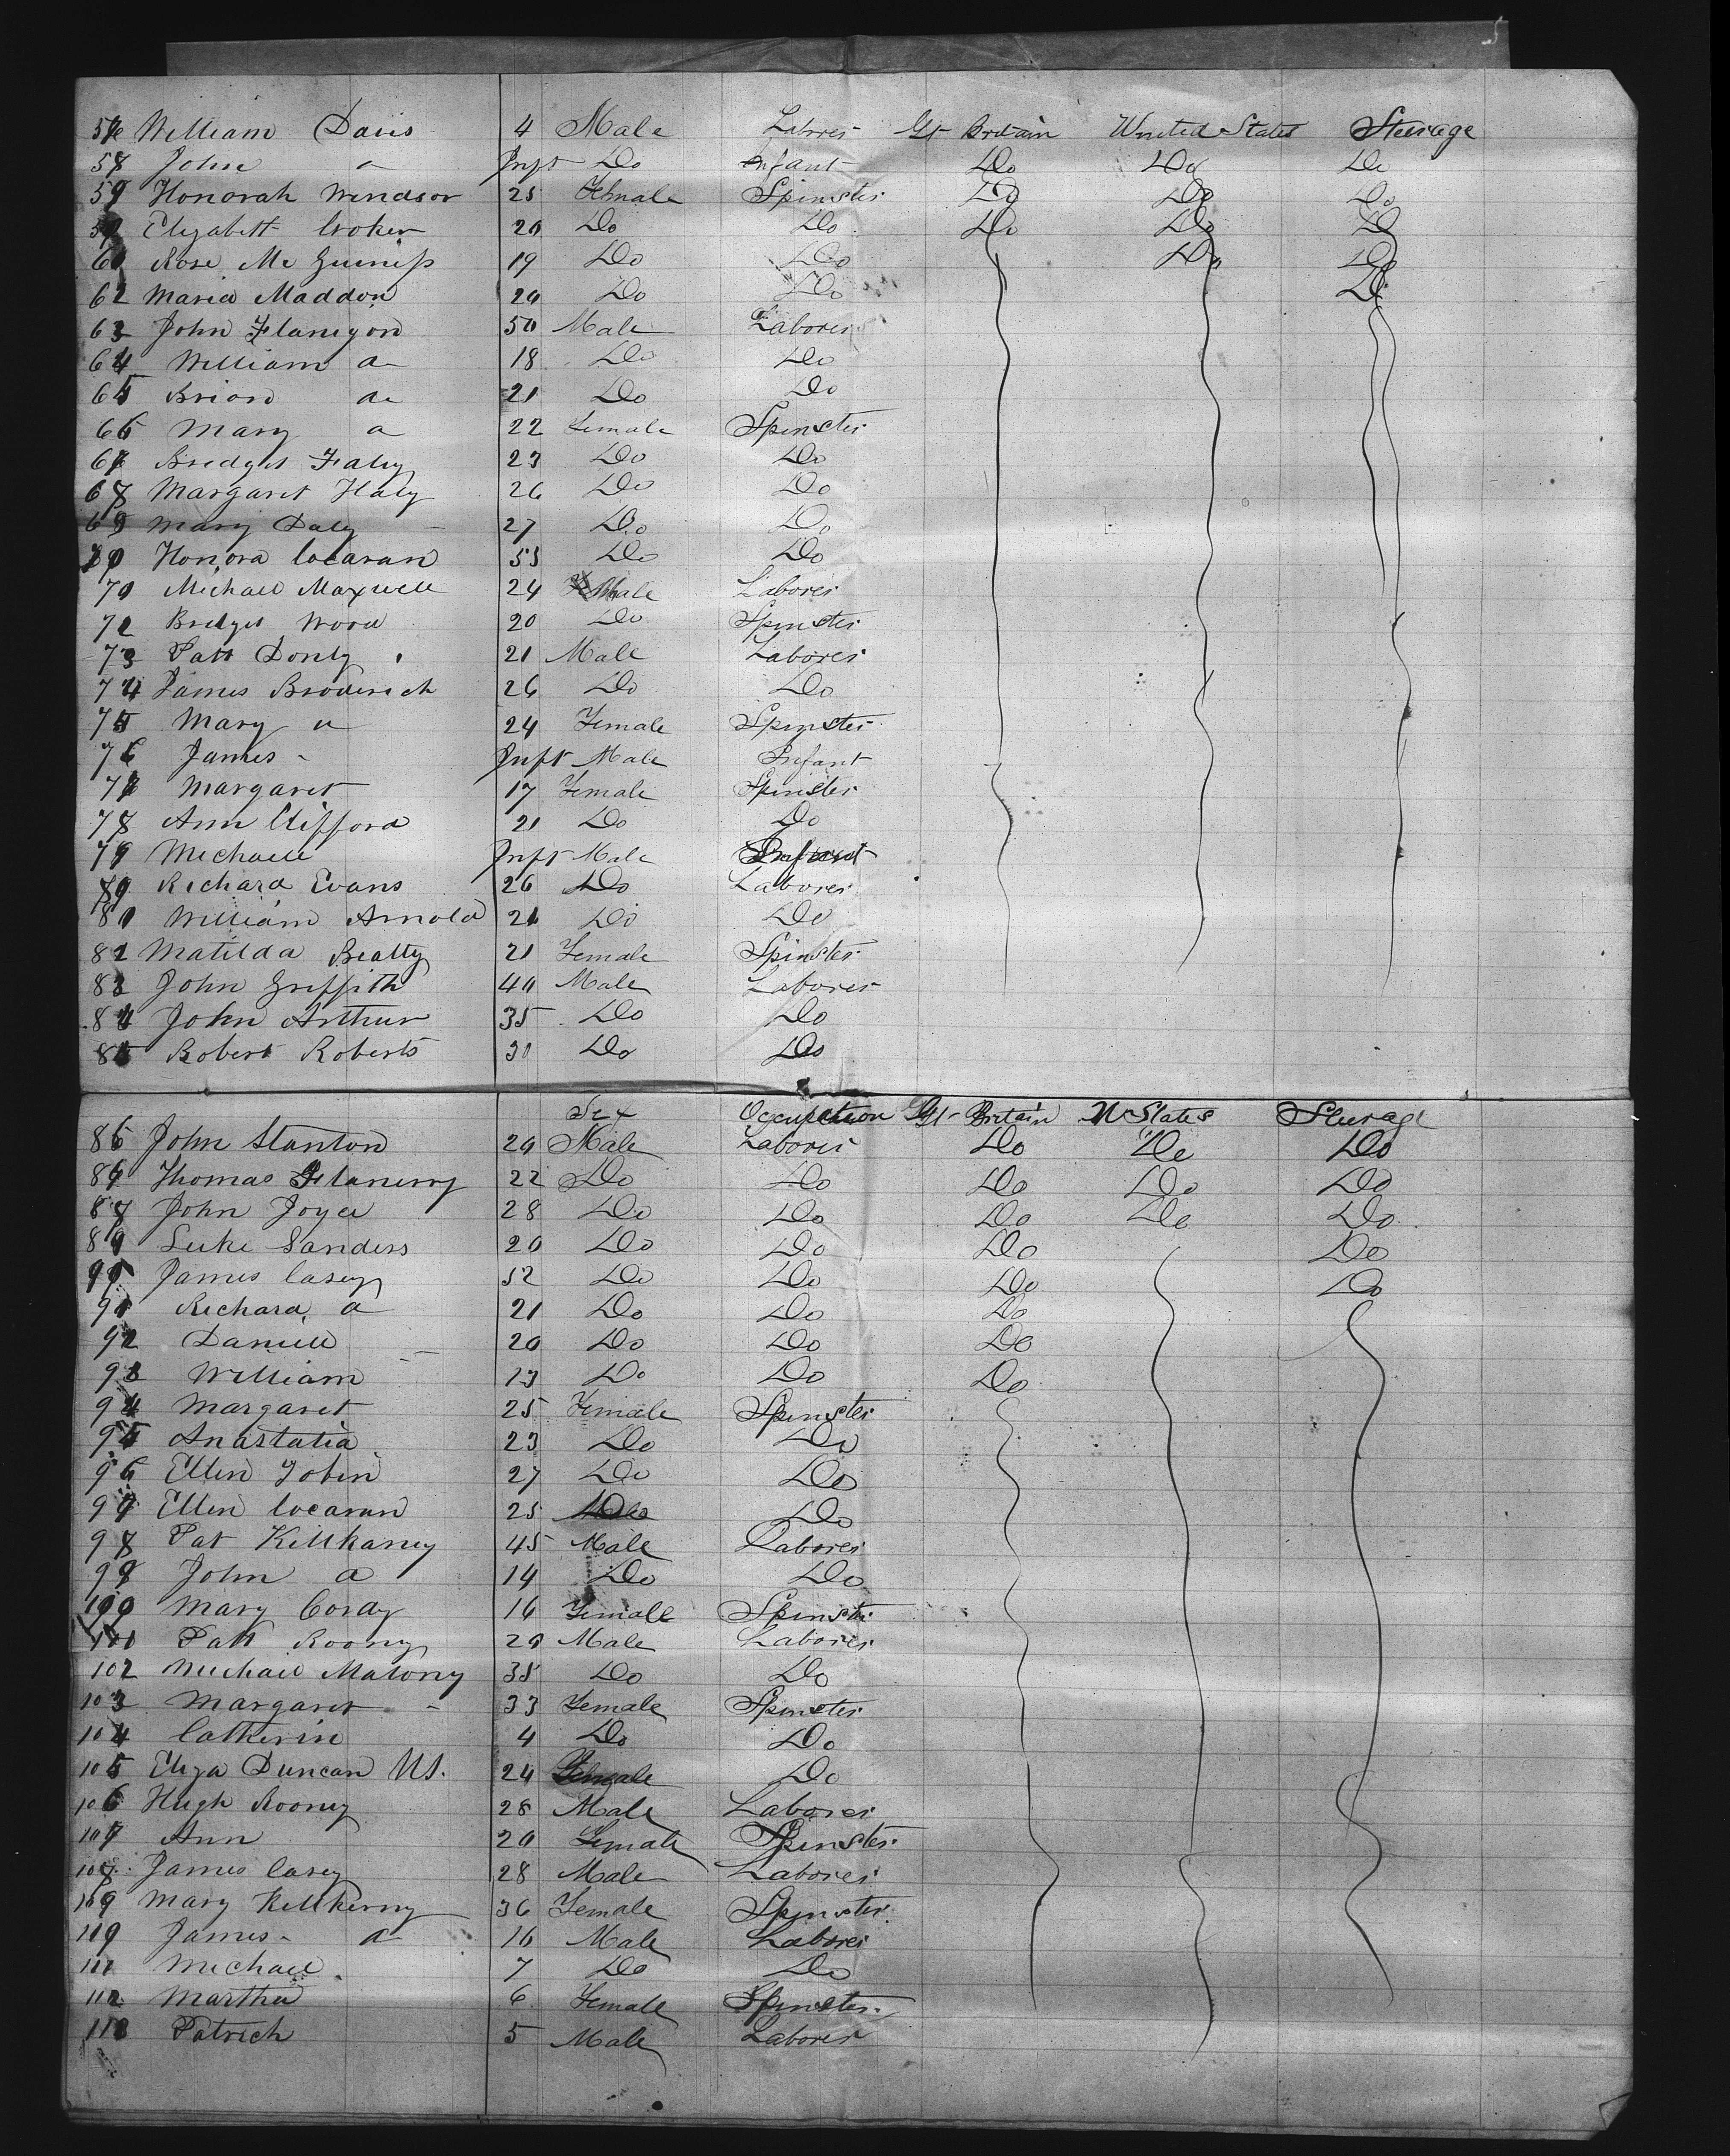 William Davis 4 Male Laborer Gt Britain United States Steerage
58 John Inft Do Infant Do Do Do
59 Honorah Windsor 25 Female Spinster Do Do Do
Elizabett 20 Do Do Do Do Do
Rose Mc Guiniss 19 Do Do Do Do
62 Maria Maddon 20 Do Do Do
63 John Flanigon 50 Male Laborer
64 William 18 Do Do
65 Brian 21 Do Do
66 Mary 22 Female Spinster
67 Bridget Fahy 23 Do Do
68 Margaret Haly 26 Do Do
69 Mary Daly 27 Do Do
Honora Cocaran 55 Do Do
70 Michael Maxwell 24 Male Laborer
72 Bridget Wood 20 Do Spinster
73 Patt Donly 21 Male Laborer
74 James Broderick 26 Do Do
75 Mary 24 Female Spinster
76 James Inft Male Infant
77 Margaret 17 Female Spinster
78 Ann Clifford 21 Do Do
79 Michael Inft Male Infant
Richard Evans 26 Do Laborer
81 William Arnold 21 Do Do
82 Matilda Beatty 21 Female Spinster
83 John Griffith 40 Male Laborer
84 John Arthur 35 Do Do
85 Robert Roberts 30 Do Do
Sex Occupation Gt Britain U States Steerage
86 John Stanton 20 Male Laborer Do Do Do
Thomas Flanerry 22 Do Do Do Do Do
John Joyce 28 Do Do Do Do Do
89 Luke Sanders 20 Do Do Do Do
James Casey 52 Do Do Do Do
91 Richard 21 Do Do Do
92 Daniell 20 Do Do Do
93 William 13 Do Do Do
94 Margaret 25 Female Spinster
95 Anastatia 23 Do Do
96 Ellen Tobin 27 Do Do
97 Ellen Cocaran 25 Do
98 Pat Killkaney 45 Male Laborer
99 John 14 Do Do
100 Mary Cordy 16 Female Spinster
101 Patt Roony 20 Male Laborer
102 Michael Malony 35 Do Do
103 Margaret 33 Female Spinster
104 Catherin 4 Do Do
105 Eliza Duncan US. 24 Female Do
106 Hugh Roony 28 Male Laborer
107 Ann 20 Female Spinster
108 James Casey 28 Male Laborer
109 Mary Killkenny 36 Female Spinster
James 16 Male Laborer
111 Michael 7 Do Do
112 Martha 6 Female Spinster
113 Patrick 5 Male Laborer